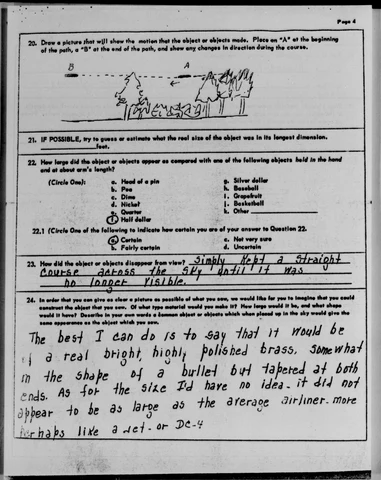 Page 4
20. Draw a picture that will show the motion that the object or objects made. Place an "A" at the beginning
of the path, a "B" at the end of the path, and show any changes in direction during the course.
B A
21. IF POSSIBLE, try to guess or estimate what the real size of the object was in its longest dimension.
feet.
22. How large did the object or objects appear as compared with one of the following objects held in the hand
and at about arm's length?
(Circle One): a. Head of a pin g. Silver dollar
b. Pea h. Baseball
c. Dime i. Grapefruit
d. Nickel j. Basketball
e. Quarter k. Other
f. Half dollar
22.1 (Circle One of the following to indicate how certain you are of your answer to Question 22.
a. Certain c. Not very sure
b. Fairly certain d. Uncertain
23. How did the object or objects disappear from view? Simply Kept a Straight
Course across the Sky until it was
no longer visible.
24. In order that you can give as clear a picture as possible of what you saw, we would like for you to imagine that you could
construct the object that you saw. Of what type material would you make it? How large would it be, and what shape
would it have? Describe in your own words a common object or objects which when placed up in the sky would give the
same appearance as the object which you saw.
The best I can do is to say that it would be
of a real bright, highly polished brass. Somewhat
in the shape of a bullet but tapered at both
ends. As for the size I'd have no idea - it did not
appear to be as large as the average airliner. more
perhaps like a jet - or DC-4